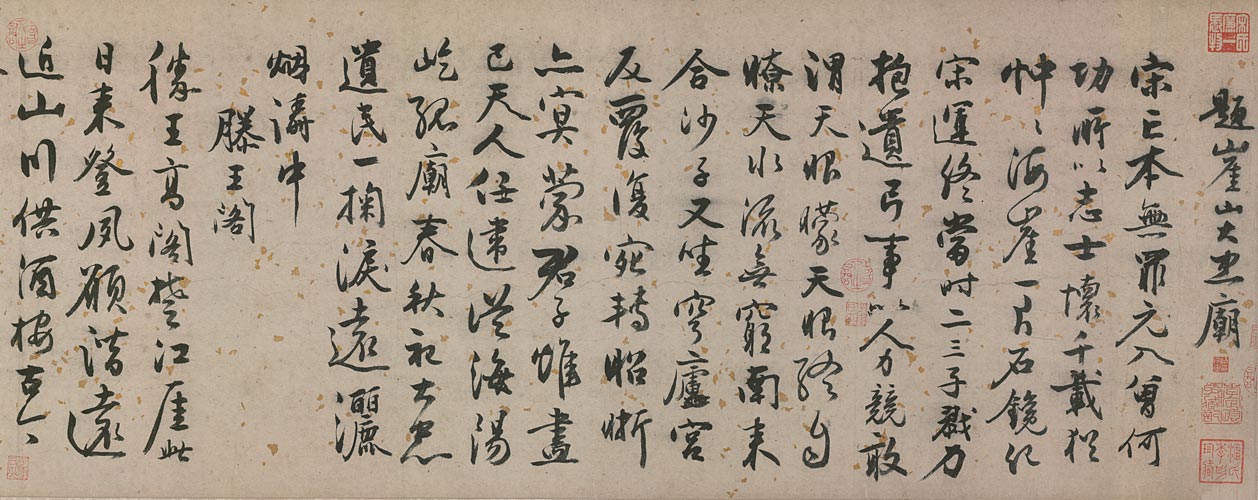 題崖山大忠廟
宋亡本無罪元入曾何
功所以志士懷千載猶
忡〻海崖一片石鐫紀
宋運終當時二三子戮力
抱遺弓事以人力競敢
謂天眼矇天眼終自
瞭天水流無窮南來
合沙子又坐穹廬宮
反覆復宛轉昭晰
亦冥蒙君子惟盡
已天人任違從海湯
屹孤廟春秋祀大忠
遺民一掬淚遠灑
烟濤中
滕王閣
滕王高閣楚江厓此
日來登夙願諧遠
近山川供酒古今